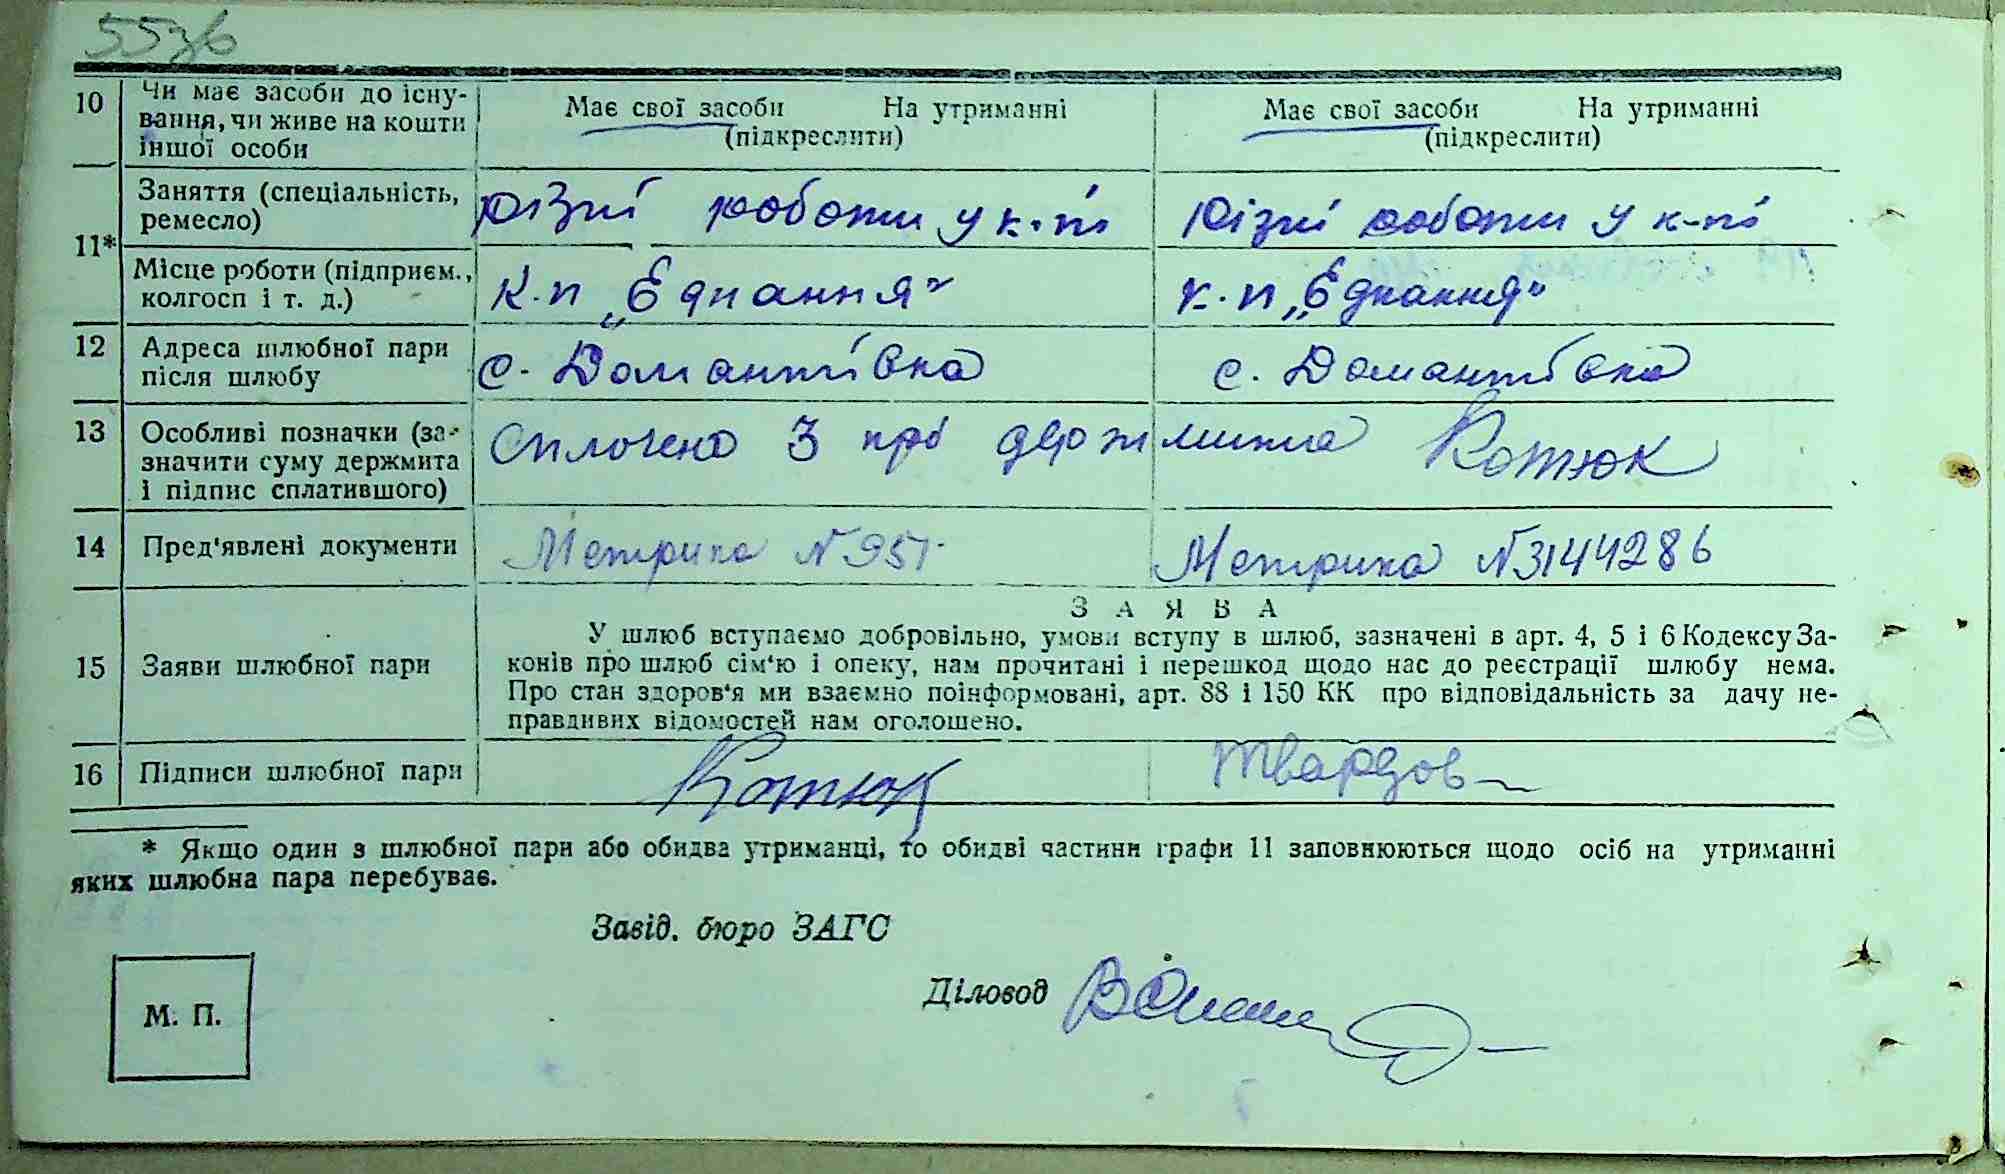 55зв
10 Чи має засоби до існу-
вання, чи живе на кошти
іншої особи
Має свої засоби На утриманні
(підкреслити)
Має свої засоби На утриманні
(підкреслити)
11*
Заняття (спеціальність,
ремесло)
різні роботи у к-пі
різні роботи у к-пі
Місце роботи (підприєм.,
колгосп і т. д.)
к.п „Єднання"
к.п „Єднання"
12 Адреса шлюбної пари
після шлюбу
с. Домантівка
с. Домантівка
13 Особливі позначки (за-
значити суму держмита
і підпис сплатившого)
Сплочено 3 крб держмита Котюк
14 Пред'явлені документи
Метрика №951
Метрика №3144286
15 Заяви шлюбної пари
ЗАЯВА
У шлюб вступаємо добровільно, умови вступу в шлюб, зазначені в арт. 4, 5 і 6 Кодексу За-
конів про шлюб сім'ю і опеку, нам прочитані і перешкод щодо нас до реєстрації шлюбу нема.
Про стан здоров'я ми взаємно поінформовані, арт. 88 і 150 КК про відповідальність за дачу не-
правдивих відомостей нам оголошено.
16 Підписи шлюбної пари
Котюк
Твардов
* Якщо один з шлюбної пари або обидва утриманці, то обидві частини графи 11 заповнюються щодо осіб на утриманні
яких шлюбна пара перебуває.
Завід. бюро ЗАГС
Діловод
М. П.